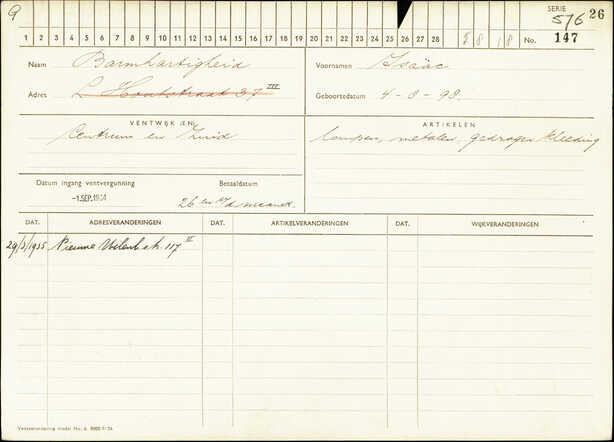 9
SERIE
576 26
1 2 3 4 5 6 7 8 9 10 11 12 13 14 15 16 17 18 19 20 21 22 23 24 25 26 27 28
8 18
No. 147
Naam Barmhartigheid
Voornamen Isaäc
Adres L. Houtstraat 37 III
Geboortedatum 4-8-98.
VENTWIJK (EN)
ARTIKELEN
Centrum en Zuid
lompen, metalen, gedragen kleeding
Datum ingang ventvergunning
Betaaldatum
-1 SEP. 1934
26 ten v/d maand.
DAT. ADRESVERANDERINGEN DAT. ARTIKELVERANDERINGEN DAT. WIJKVERANDERINGEN
29/3/1935 Nieuwe str. 117 II
Ventverordening model No. 6